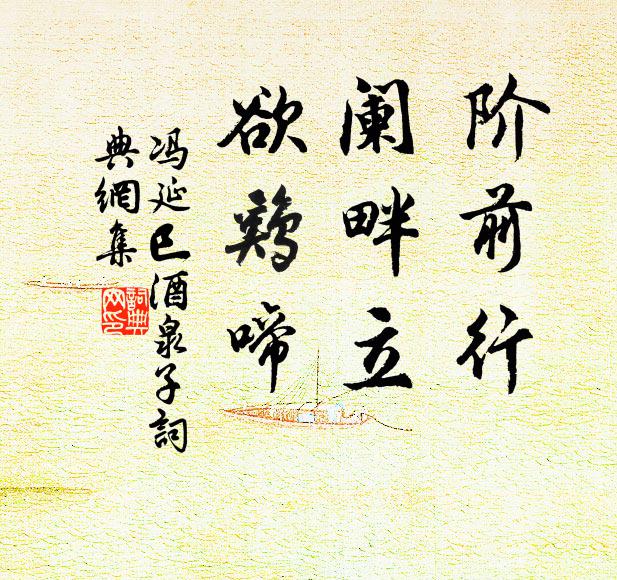 阶前行
阑畔立
欲鸡啼
冯延巳酒泉子詞
典網集
詞典
网印